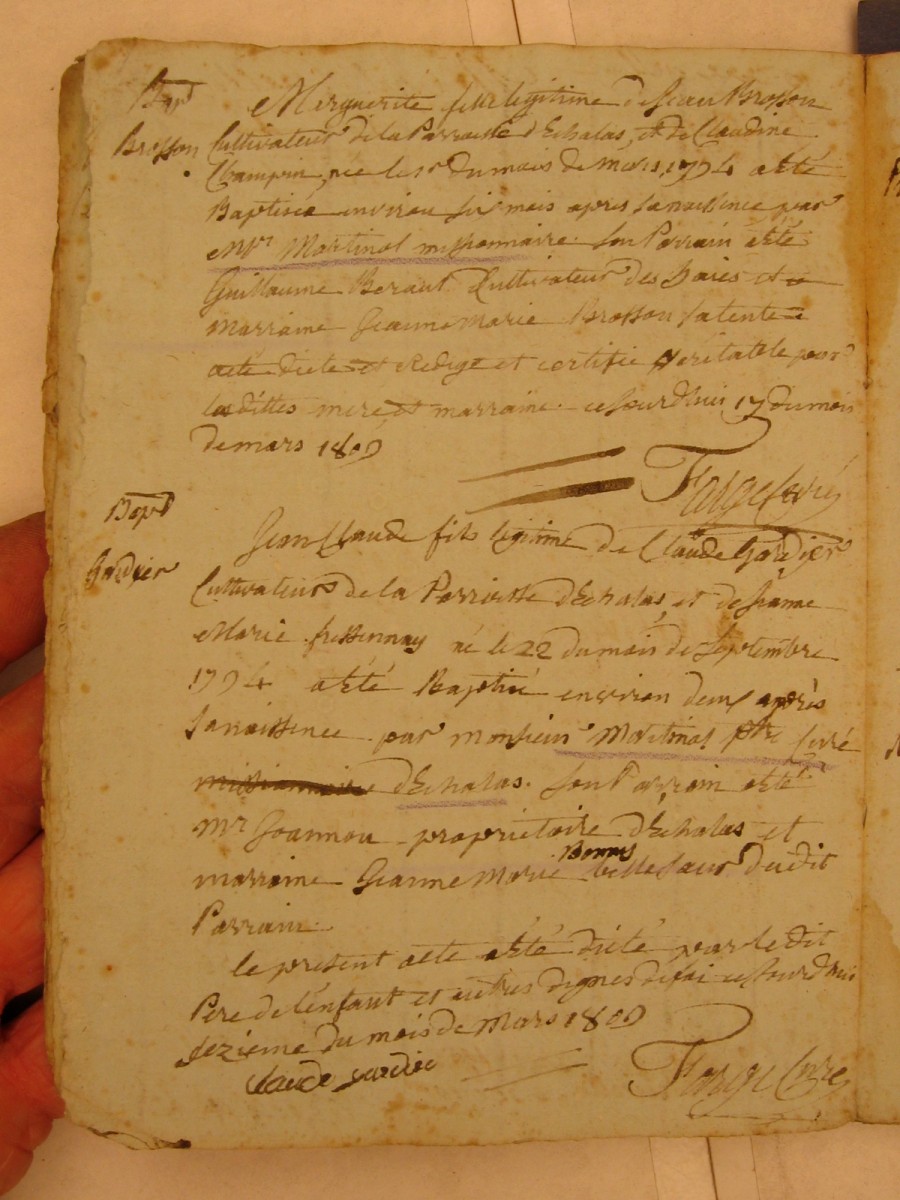 Bap.t
Brosson
Merguerite fille legitime de Jean Brosson
Cultivateur de la Parroisse d'Echalas, et de Claudine
Champin, née le 1r du mois de mars 1794 a été
Baptisée environ six mois apres sa naissence par
Mr. Martinal missionnaire. Son Parrain a été
Guillaume Beraut Cultivateur des haies et a
marraine Jeanne Marie Brosson sa tente
acte dicte et Redigé et certifié veritable par
lesdittes mere et marraine. cejourdhui 17 du mois
de mars 1809
Farge Curé
Bap.t
Gardier
Jean Claude fils legitime de Claude Gardier
Cultivateur de la Parroisse d'Echalas, et de Jeanne
Marie né le 22 du mois de Septembre
1794 a été Baptisé environ deux après
sa naissence par monsieur Martinal ptre Curé
missionnaire d'Echalas. Son Parrain a été
Mr Joannon proprietaire d'Echalas et
Bonnay
marraine Jeanne Marie belle saeur dudit
Parrain.
le present acte a été dicté par le dit
Pere de l'enfant et autres dignes de foi cejourdhui
sezieme du mois de Mars 1809
Claude gardier
Farge Curé